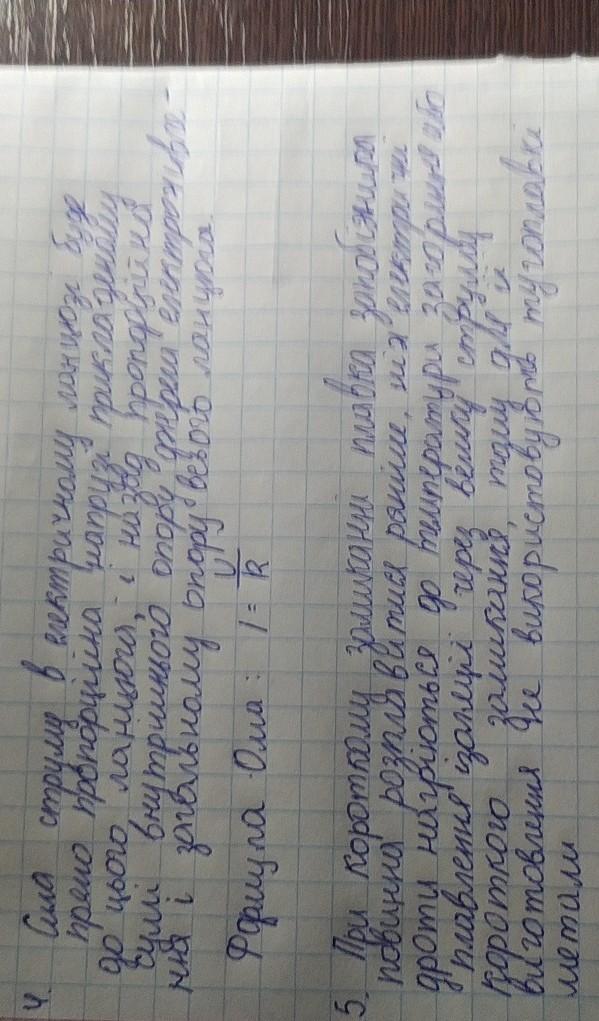 4. Сила струму в електричному ланцюзі буде
прямо пропорційна напрузі прикладеному
до цього ланцюга, і назад пропорційна
сумі внутрішнього опору джерела електроживле-
ння і загальному опору всього ланцюга.
Формула Ома: I = U/R
5. При короткому замиканні плавка запобіжника
повинна розплавитися раніше, ніж електричні
дроти нагріються до температури загорання або
плавлення ізоляції через велику струму
короткого замикання, тому для її
виготовлення не використовують тугоплавкі
метали